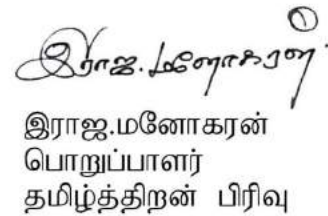 இராஜ.மனோகரன்
இராஜ.மனோகரன்
பொறுப்பாளர்
தமிழ்த்திறன் பிரிவு